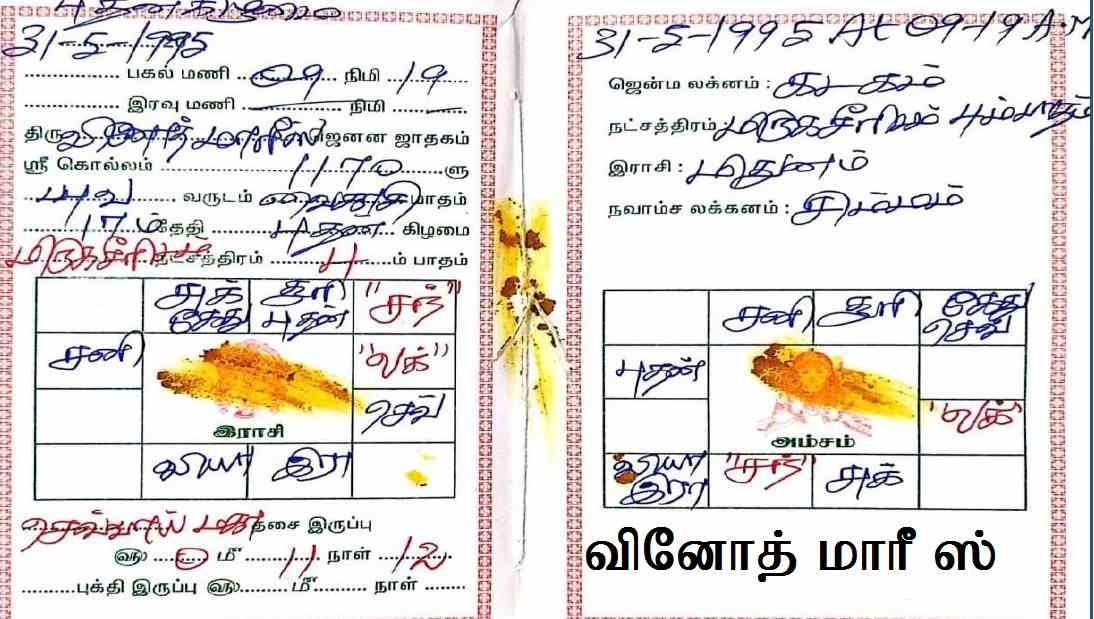 புதன்கிழமை
31-5-1995
பகல் மணி 09 நிமி 19
இரவு மணி நிமி
திரு வினோத் மாரீஸ் ஜெனன ஜாதகம்
ஸ்ரீ கொல்லம் 1170 ளு
யுவ வருடம் வைகாசி மாதம்
17 ம்தேதி புதன் கிழமை
மிருகசீரிஷம் நட்சத்திரம் 4 ம் பாதம்
சுக் சூரி "சந்"
கேது புதன்
சனி "லக்"
செவ்
இராசி
வியா இரா
செவ்வாய் மகா தசை இருப்பு
வரு 0 மீ 11 நாள் 12
புக்தி இருப்பு வரு மீ நாள்
31-5-1995 At 09-19 A.M
ஜென்ம லக்னம் : கடகம்
நட்சத்திரம் : மிருகசீரிஷம் 4ம்பாதம்
இராசி : மிதுனம்
நவாம்ச லக்கனம் : சிம்மம்
சனி சூரி கேது
செவ்
புதன்
"லக்"
அம்சம்
வியா "சந்" சுக்
இரா
வினோத் மாரீ ஸ்